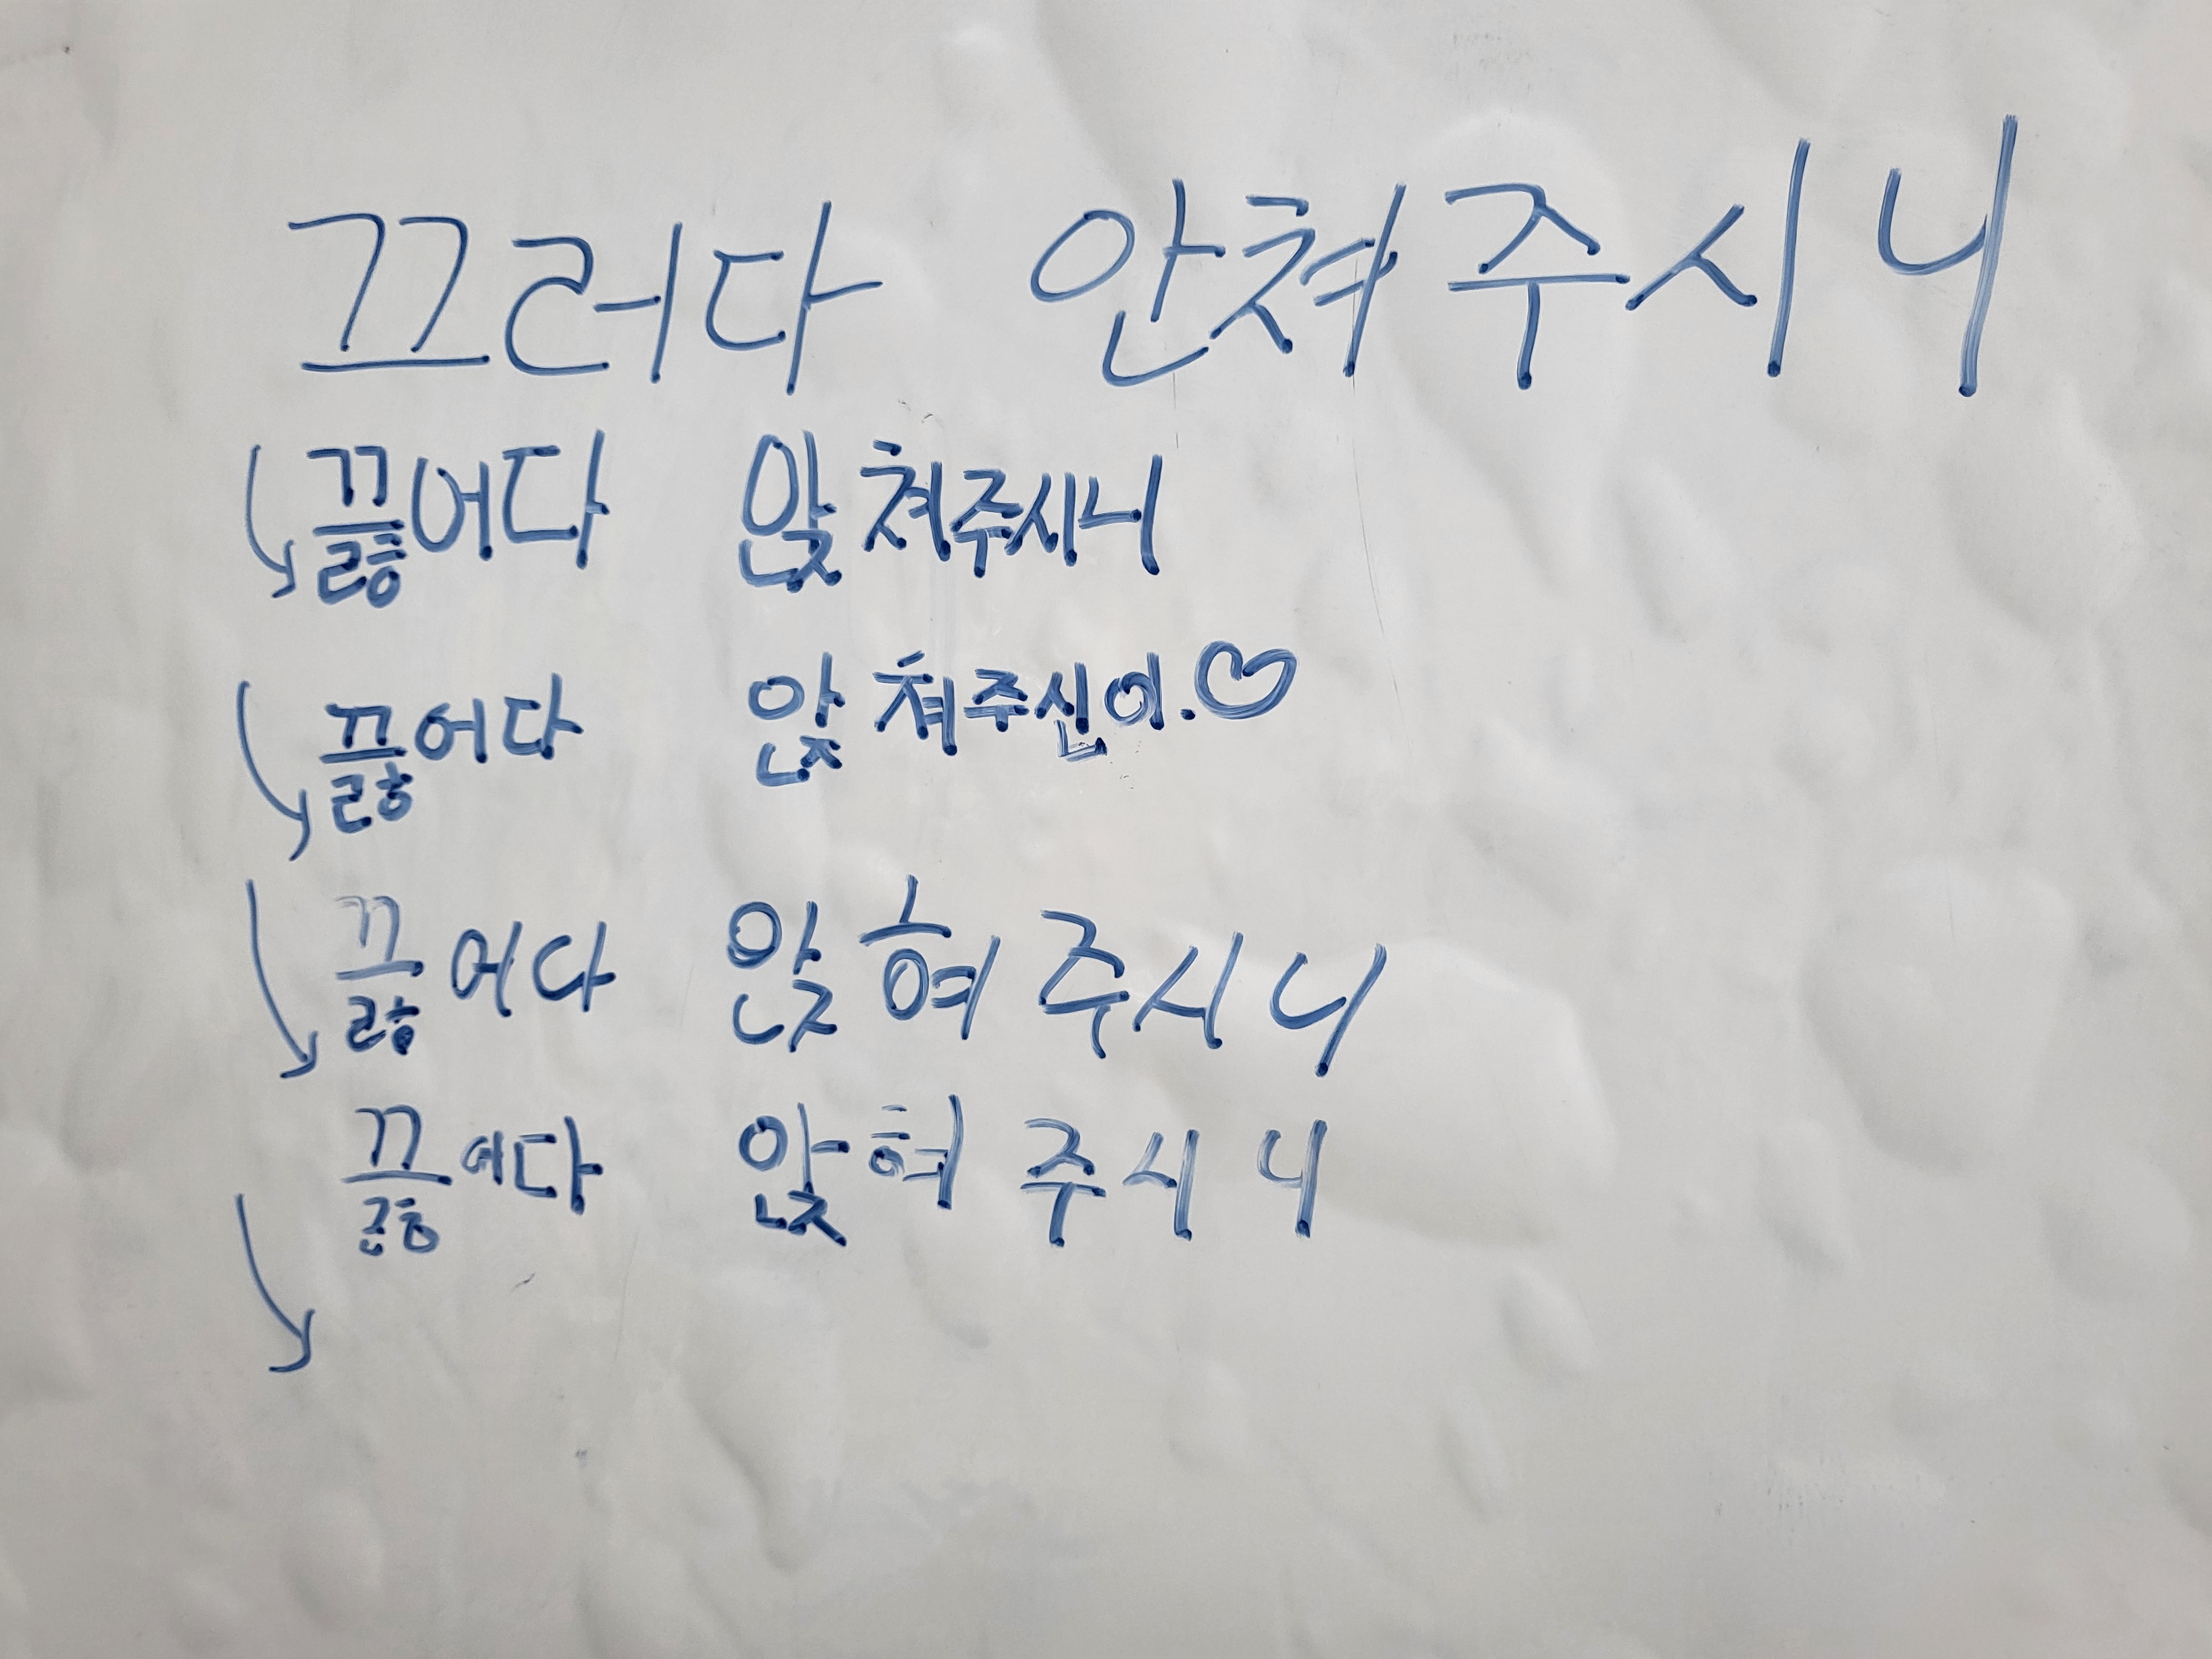 끄러다 안쳐주시니
끓어다 앉쳐주시니
끓어다 앉쳐주신이.♡
끓어다 앉혀주시니
끓어다 앉혀주시니